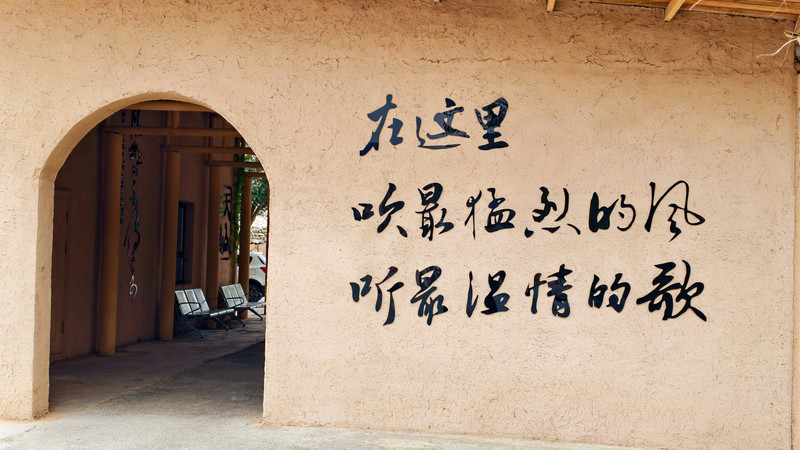 在这里
吹最猛烈的风
听最温情的歌